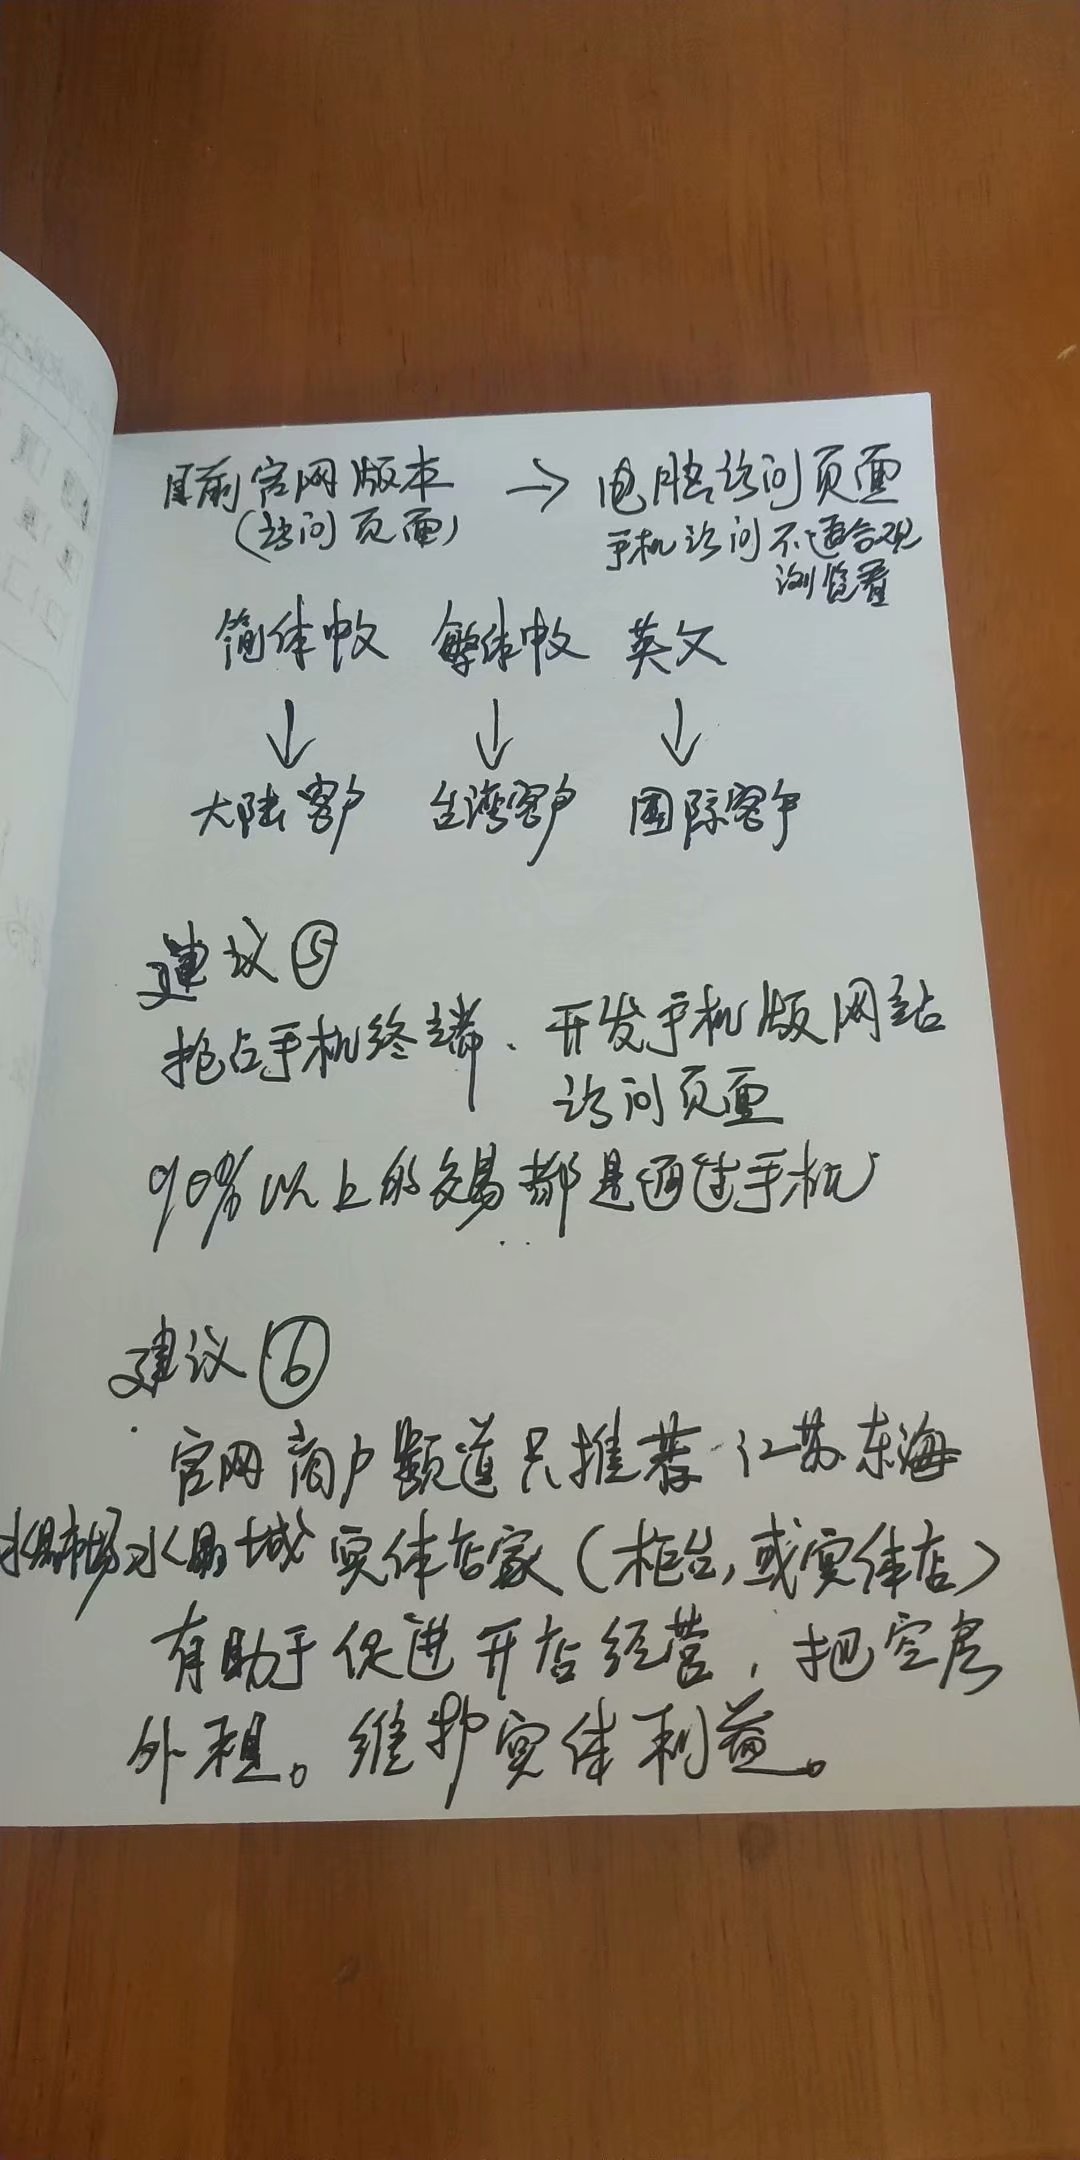 目前官网版本 → 电脑访问页面
(访问页面) 手机访问不适合观
浏览看
简体中文 繁体中文 英文
↓ ↓ ↓
大陆客户 台湾客户 国际客户
建议⑤
抢占手机终端、开发手机版网站
访问页面
90%以上的交易都是通过手机
建议⑥
官网商户频道只推荐江苏东海
水晶市场水晶城实体店家(柜台,或实体店)
有助于促进开店经营,把空房
外租。维护实体利益。